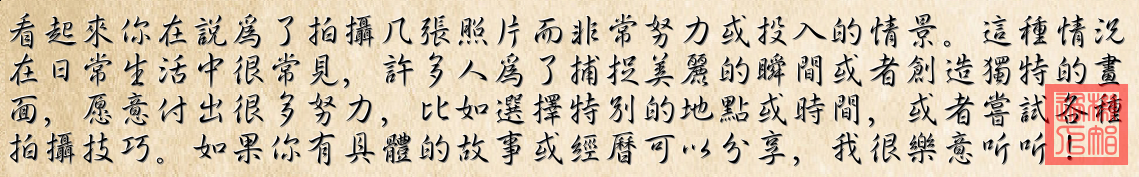 看起來你在説爲了拍攝几張照片而非常努力或投入的情景。這種情况
在日常生活中很常見，許多人爲了捕捉美麗的瞬間或者創造獨特的畫
面，愿意付出很多努力，比如選擇特别的地點或時間，或者嘗試各種
拍攝技巧。如果你有具體的故事或經曆可以分享，我很樂意听听！